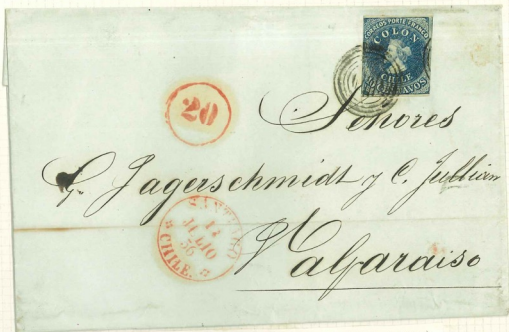 CORREOS PORTE FRANCO
COLON
CHILE
20
Señores
Jagerschmidt y C. Jullian
Valparaiso
SANTIAGO
JULIO
CHILE.